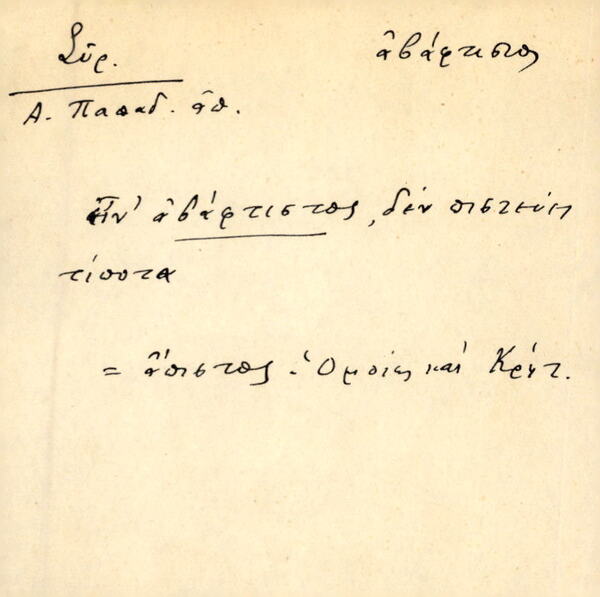 Σῦρ. ἀβάφτιστος
Α. Παπαδ. ἀπ.
Εἶν' ἀβάφτιστος, δὲν πιστεύει
τίποτα
= ἄπιστος. Ὁμοίως καὶ Κρήτ.